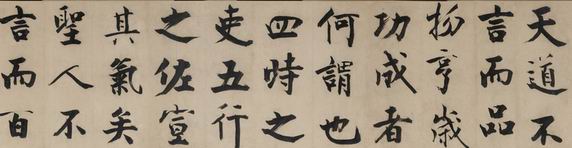 天道不
言而品
物亨歲
功成者
何謂也
四時之
吏五行
之佐宣
其氣矣
聖人不
言而百